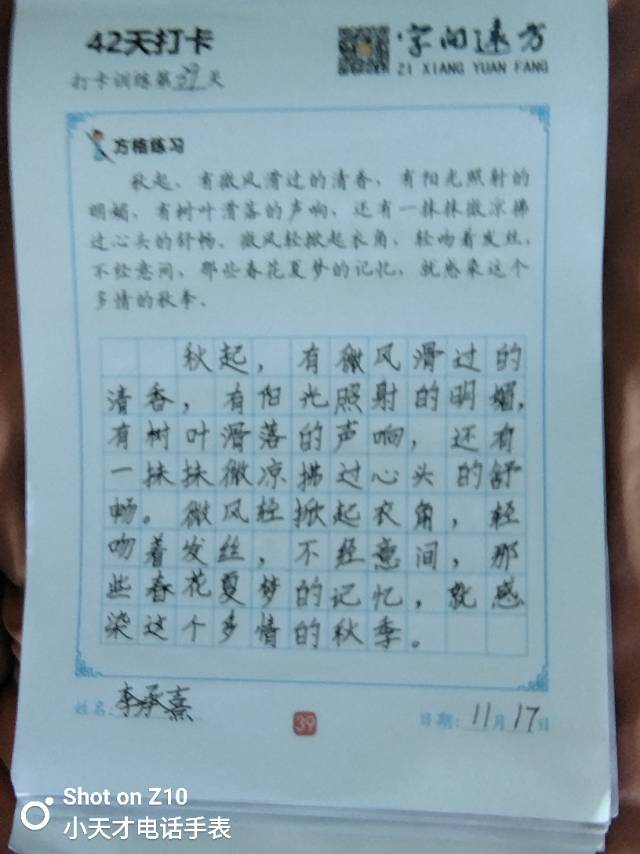 42天打卡
字向远方
ZI XIANG YUAN FANG
打卡训练第39天
方格练习
秋起，有微风滑过的清香，有阳光照射的
明媚，有树叶滑落的声响，还有一抹抹微凉拂
过心头的舒畅。微风轻掀起衣角，轻吻着发丝，
不经意间，那些春花夏梦的记忆，就感染这个
多情的秋季。
秋起，有微风滑过的
清香，有阳光照射的明媚，
有树叶滑落的声响，还有
一抹抹微凉拂过心头的舒
畅。微风轻掀起衣角，轻
吻着发丝，不经意间，那
些春花夏梦的记忆，就感
染这个多情的秋季。
姓名：李承熹
39
日期：11月17日
Shot on Z10
小天才电话手表